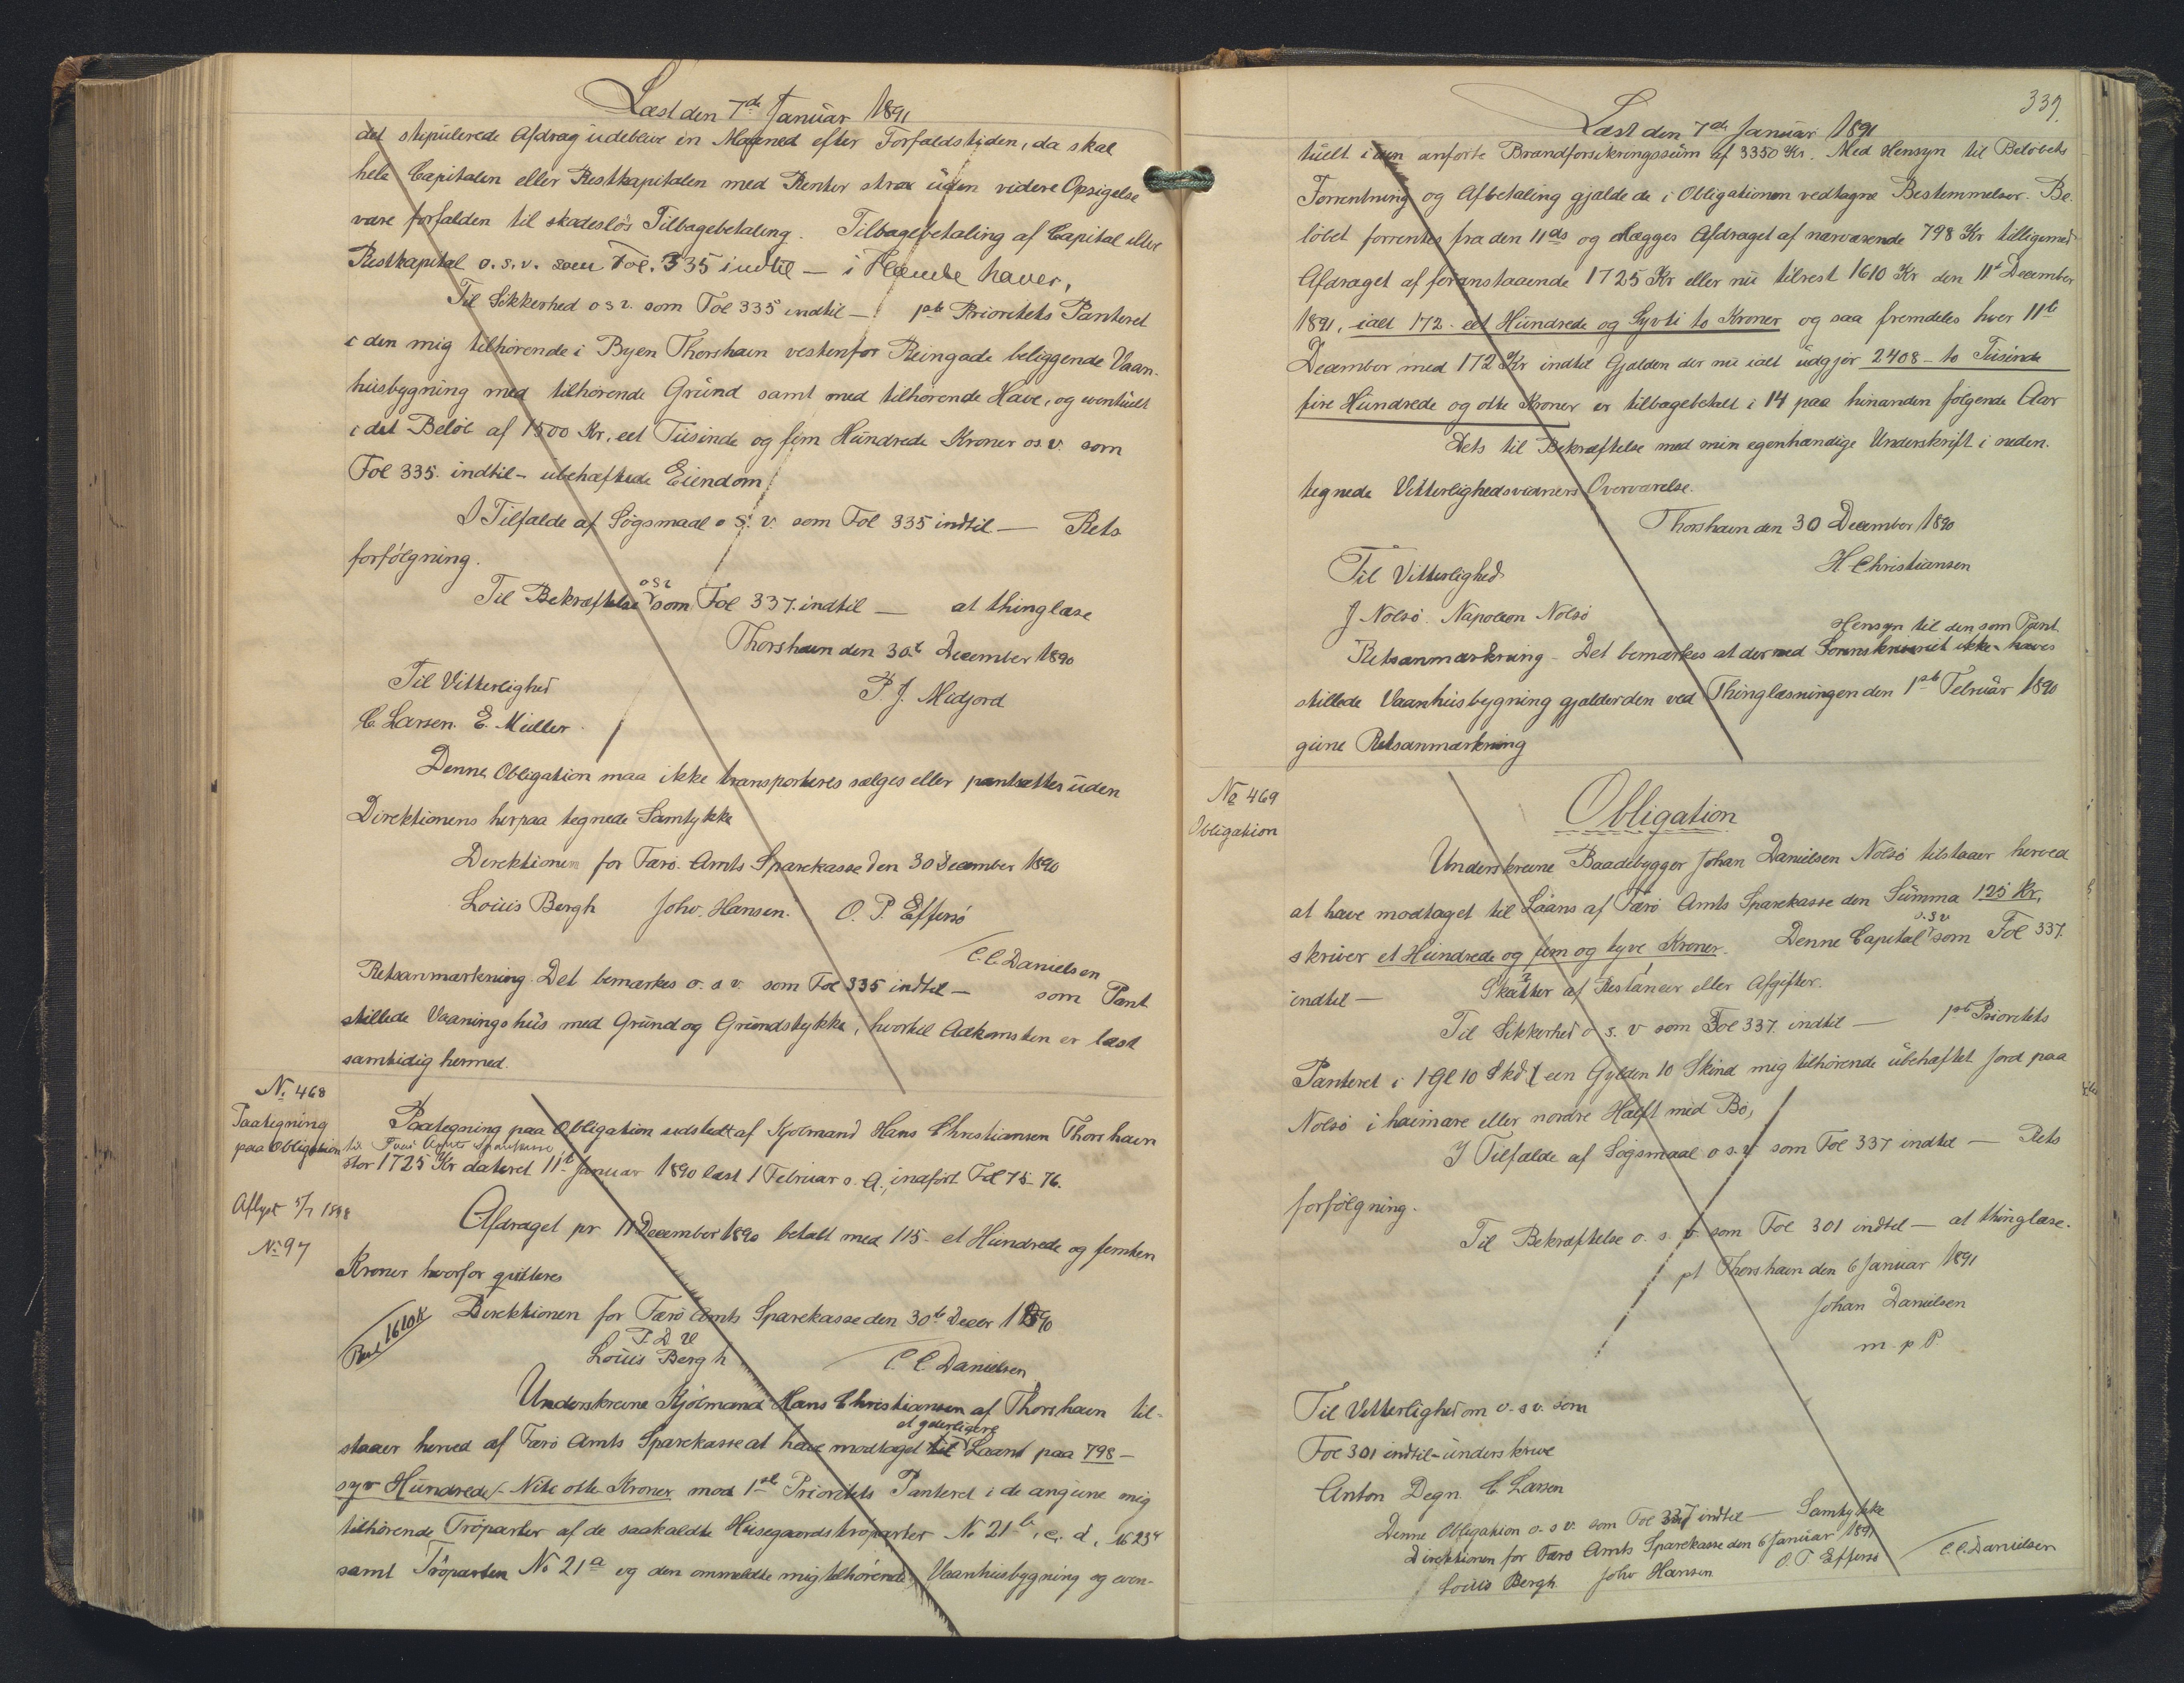 Læst den 7de Januar 1891
det stipulerede Afdrag udeblive en Maaned efter Forfaldstiden, da skal
hele Capitalen eller Restkapitalen med Renter strax uden videre Opsigelse
være forfalden til skadesløs Tilbagebetaling. Tilbagebetaling af Capital eller
Restkapital o.s.v. som Fol. 335 indtil — i Hænde haver,
Til Sikkerhed o s v. som Fol 335 indtil — 1ste Prioritets Panteret
i den mig tilhørende i Byen Thorshavn vestenfor Reingade beliggende Vaan-
husbygning med tilhørende Grund samt med tilhørende Have, og eventuelt
i det Beløb af 1500 Kr, eet Tusinde og fem Hundrede Kroner o s. v. som
Fol 335. indtil - ubehæftede Eiendom
I Tilfælde af Søgsmaal o s. v. som Fol 335 indtil — Rets
forfølgning.
Til Bekræftelse o s v som Fol 337. indtil — at thinglæse
Thorshavn den 30te December 1890
Til Vitterlighed P. J. Midjord
C. Larsen. E. Müller.
Denne Obligation maa ikke transporteres sælges eller pantsættes uden
Direktionens herpaa tegnede Samtykke
Direktionen for Færø Amts Sparekasse den 30 December 1890
Louis Bergh Johv. Hansen. O. P. Effersø
C. C. Danielsen
Retsanmærkning. Det bemærkes o. s v. som Fol 335 indtil — som Pant
stillede Vaaningshus med Grund og Grundstykke, hvortil Adkomsten er læst
samtidig hermed.
No. 468
Paategning
paa Obligation
Paategning paa Obligation udstedt af Kjølmand Hans Christiansen Thorshavn
til Færø Amts Sparekasse
stor 1725 Kr dateret 11te Januar 1890 læst 1 Februar s. A., indført Fol 75-76.
Aflyst 5/7 1898
No 97
Afdraget pr 11 December 1890 betalt med 115 - et Hundrede og femten
Kroner hvorfor qvitteres
Direktionen for Færø Amts Sparekasse den 30te Decbr 1890
Rest 1610 Kr
P. D. V
Louis Bergh C C Danielsen
Underskrevne Kjølmand Hans Christiansen af Thorshavn til-
staaer herved af Færø Amts Sparekasse at have modtaget til et yderligere Laant paa 798 —
syv Hundrede Niti otte Kroner mod 1ste Prioritets Panteret i de angivne mig
tilhørende Trøparter af de saakaldte Husegaardstrøparter No 21 b, c, d, 16 23d
samt Trøparten No 21 a og den ommeldte mig tilhørende Vaanhusbygning og even-
339
Læst den 7de Januar 1891
tuelt i den anførte Brandforsikringssum af 3350 Kr. Med Hensyn til Beløbets
Forrentning og Afbetaling gjælde de i Obligationen vedtagne Bestemmelser. Be-
løbet forrentes fra den 11 ds og lægges Afdraget af nærværende 798 Kr tilligemed
Afdraget af foranstaaende 1725 Kr eller nu tilrest 1610 Kr den 11te December
1891, ialt 172 - eet Hundrede og Syvti to Kroner og saa fremdeles hver 11te
December med 172 Kr indtil Gjælden der nu ialt udgjør 2408 - to Tusinde
fire Hundrede og otte Kroner er tilbagebetalt i 14 paa hinanden følgende Aar
Dets til Bekræftelse med min egenhændige Underskrift i neden-
tegnede Vitterlighedsvidners Overværelse.
Thorshavn den 30 December 1890
Til Vitterlighed H Christiansen
J Nolsø. Napoleon Nolsø
Hensyn til den som Pant
Retsanmærkning - Det bemærkes at der med
stillede Vaanhusbygning gjælder den ved Thinglæsningen den 1ste Februar 1890
givne Retsanmærkning
No 469
Obligation
Obligation
Underskrevne Baadebygger Johan Danielsen Nolsø tilstaaer herved
at have modtaget til Laans af Færø Amts Sparekasse den Summa 125 Kr,
skriver et Hundrede og fem og tyve Kroner. Denne Capital o. s v som Fol 337.
indtil — Skatter af Restancer eller Afgifter.
Til Sikkerhed o s. v som Fol 337. indtil — 1ste Prioritets
Panteret i 1 Gl 10 Skd een Gylden 10 Skind mig tilhørende ubehæftet Jord paa
Nolsø i haimare eller nordre Hálft mid Bø,
I Tilfælde af Søgsmaal o s. v som Fol 337 indtil — Rets
forfølgning.
Til Bekræftelse o. s. v. som Fol 301 indtil — at thinglæse.
pt Thorshavn den 6 Januar 1891
Johan Danielsen
m. p P.
Til Vitterlighed om o. s v. som
Fol 301 indtil - underskrive
Anton Degn. C. Larsen
Denne Obligation o. s v. som Fol 337 indtil — Samtykke
Direktionen for Færø Amts Sparekasse den 6 Januar 1891
Louis Bergh Johv Hansen O. P Effersø C. C. Danielsen